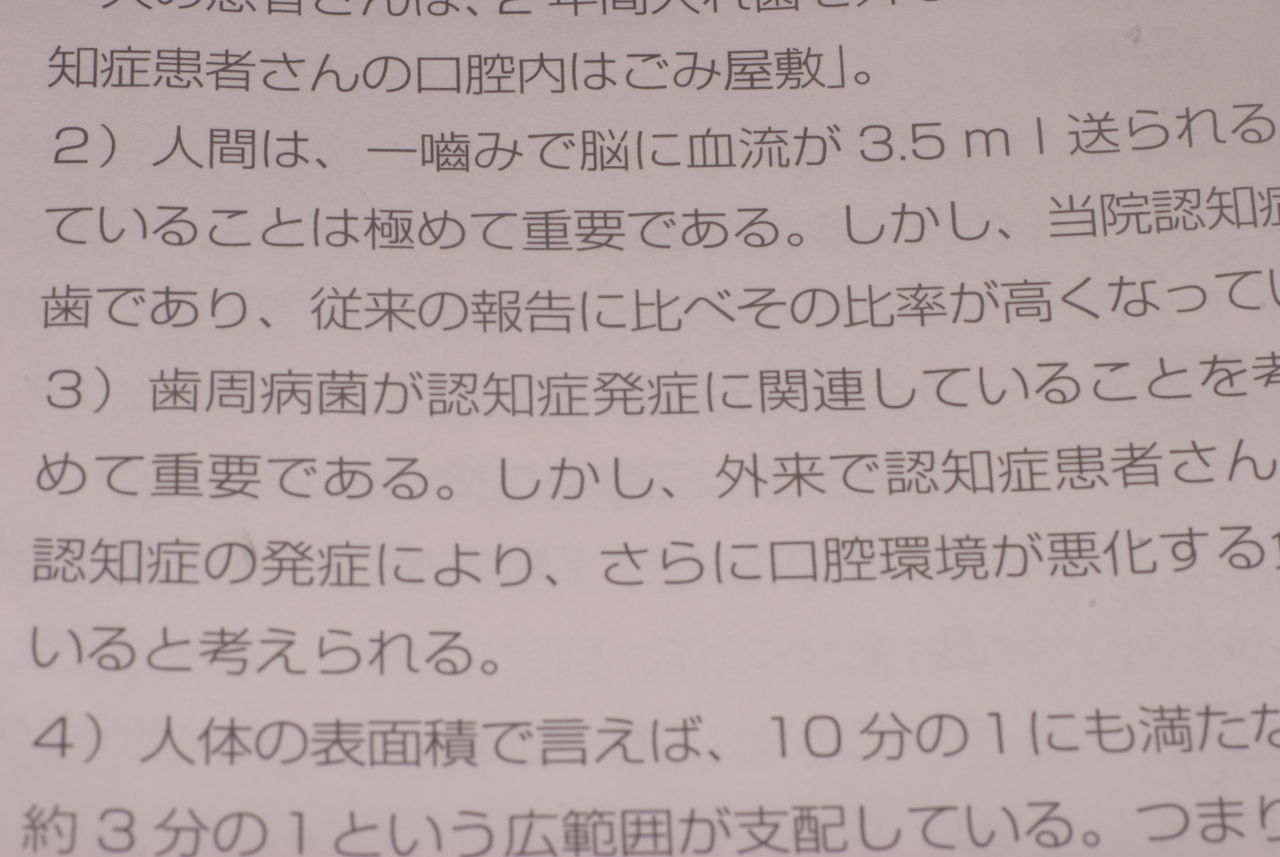 人の患者さんは、2年間入れ歯を外
知症患者さんの口腔内はごみ屋敷」。
2）人間は、一嚙みで脳に血流が 3.5 ｍｌ送られる
ていることは極めて重要である。しかし、当院認知症
歯であり、従来の報告に比べその比率が高くなってい
3）歯周病菌が認知症発症に関連していることを考
めて重要である。しかし、外来で認知症患者さん
認知症の発症により、さらに口腔環境が悪化する
いると考えられる。
4）人体の表面積で言えば、10 分の１にも満たな
約 3 分の１という広範囲が支配している。つまり